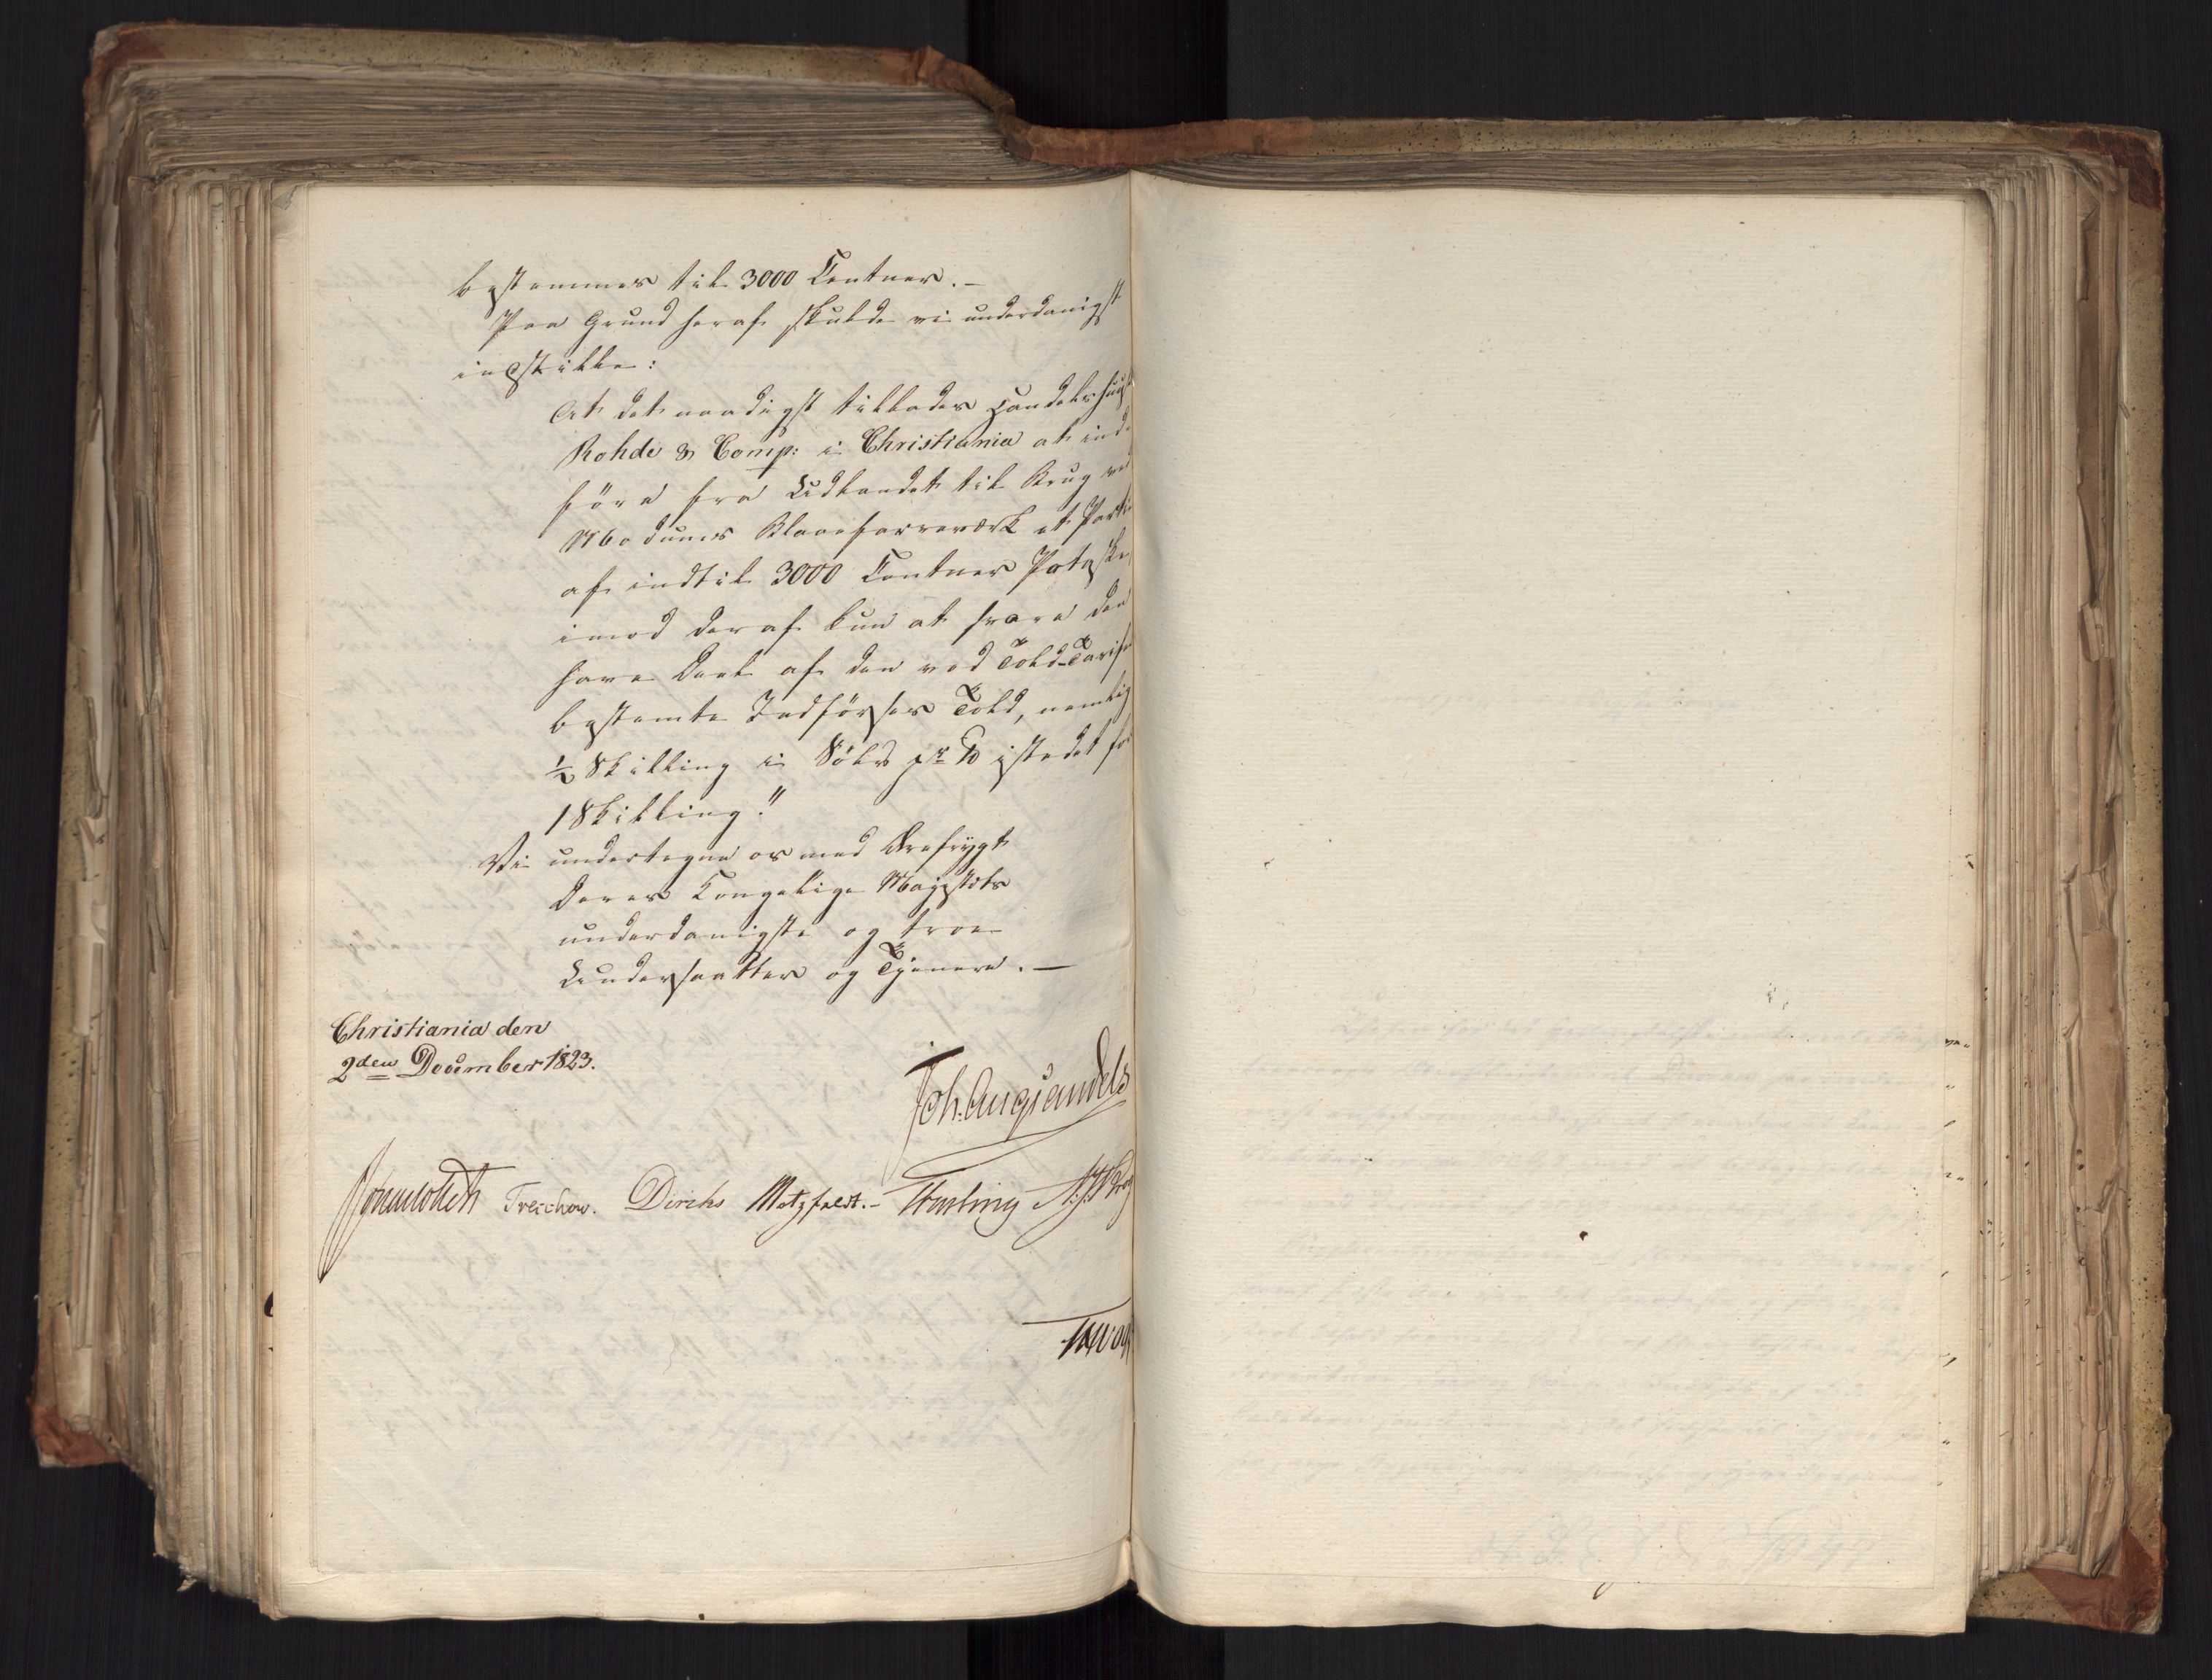 bestemmes til 3000 Centner. –
Paa Grund heraf skulde vi underdanigst
indstille:
At det naadigst tillades Handelshuset
Rohde & Comp: i Christiania at ind-
føre fra Udlandet til Brug ved
Modums Blaafarveværk et Partie
af indtil 3000 Centner Potaske,
imod deraf kun at svare den
halve Deel af den ved Told-Tarifen
bestemte Indførsels Told, nemlig
½ Skilling i Sølv pr ℔ istedet for
1 Skilling."
Vi undertegne os med Ærefrygt
Deres Kongelige Majestæts
underdanigste og troe
Undersaatter og Tjenere. —
Christiania den
2den December 1823.
Joh. Aug. Sandels
Treschow. Diriks Motzfeldt. –